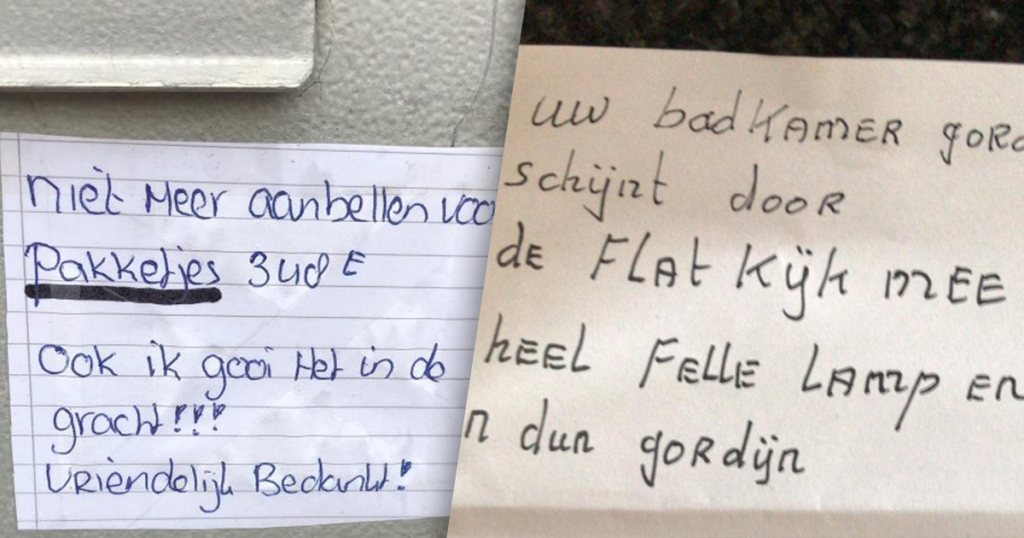 niet Meer aanbellen voo
Pakketjes 348 E
Ook ik gooi Het in de
gracht!!!
Vriendelijk Bedankt!
uw badKAMER gord
schijnt door
de FLAt Kijk MEE
hEEL FELLE LAMp EN
n dun goRdijn